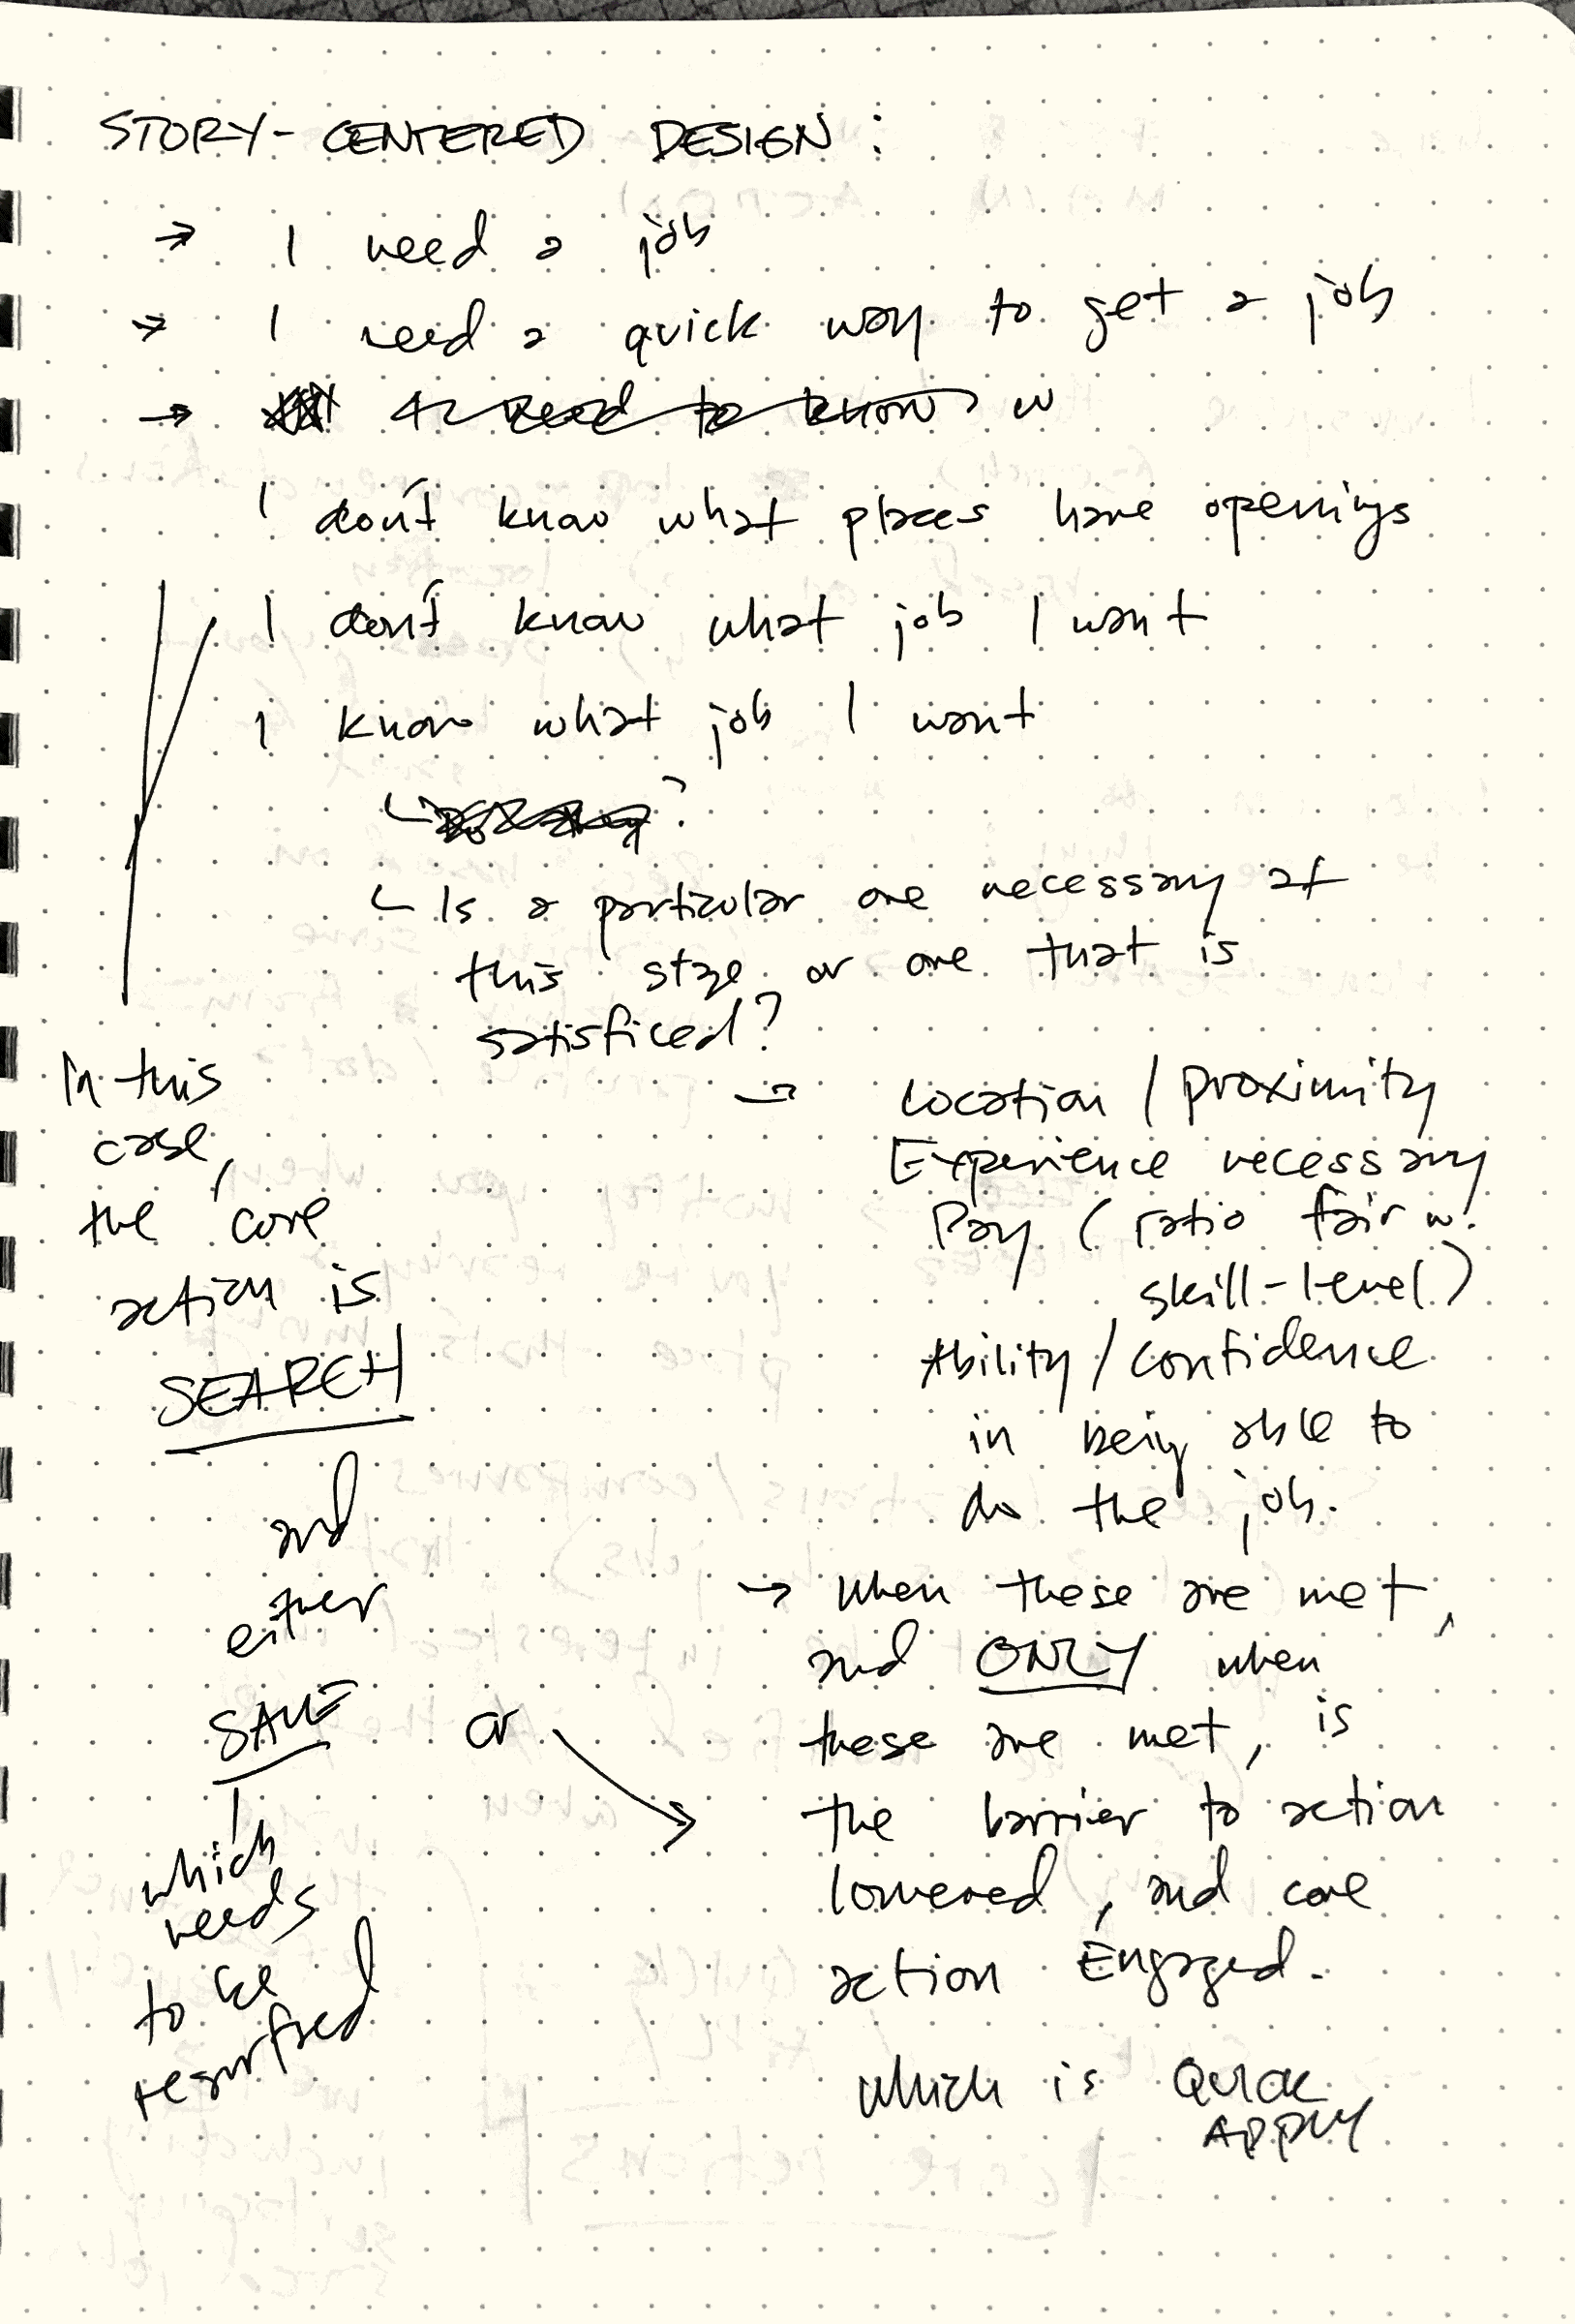 STORY-CENTERED DESIGN:
→ I need a job
→ I need a quick way to get a job
→ I need to know w
I don't know what places have openings
I don't know what job I want
I know what job I want
↳ ?
↳ Is a particular one necessary at
this stage or one that is
satisficed?
In this
case,
the core
action is
SEARCH
and
either
SAVE or
which
needs
to be
resurfaced
→ Location / Proximity
Experience necessary
Pay (ratio fair w.
skill-level)
Ability / confidence
in being able to
do the job.
→ when these are met,
and ONLY when
these are met, is
the barrier to action
lowered, and core
action Engaged.
which is QUICK
APPLY